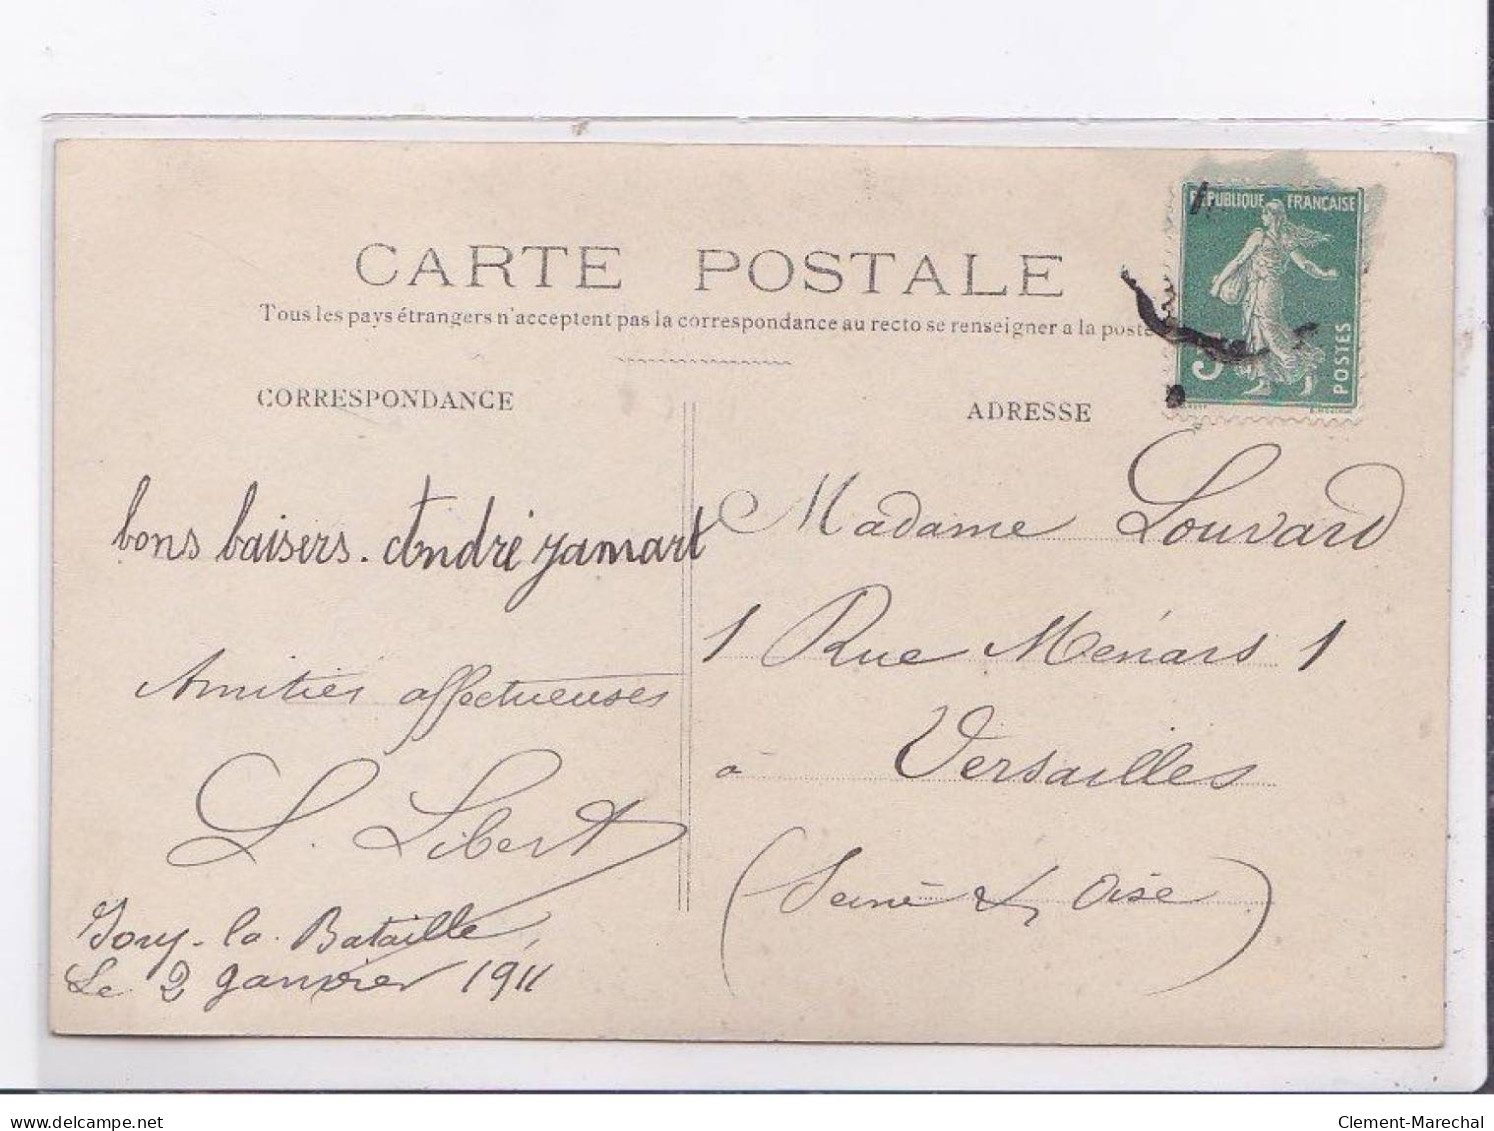 RÉPUBLIQUE FRANÇAISE
POSTES
5
CARTE POSTALE
Tous les pays étrangers n'acceptent pas la correspondance au recto se renseigner a la poste
CORRESPONDANCE
ADRESSE
bons baisers. André Jamart
Amitiés affectueuses
L. Libert
Ivry-la-Bataille,
Le 2 Janvier 1911
Madame Louvard
1 Rue Ménars 1
à Versailles
(Seine & Oise)
delcampe.net
Clement-Marechal